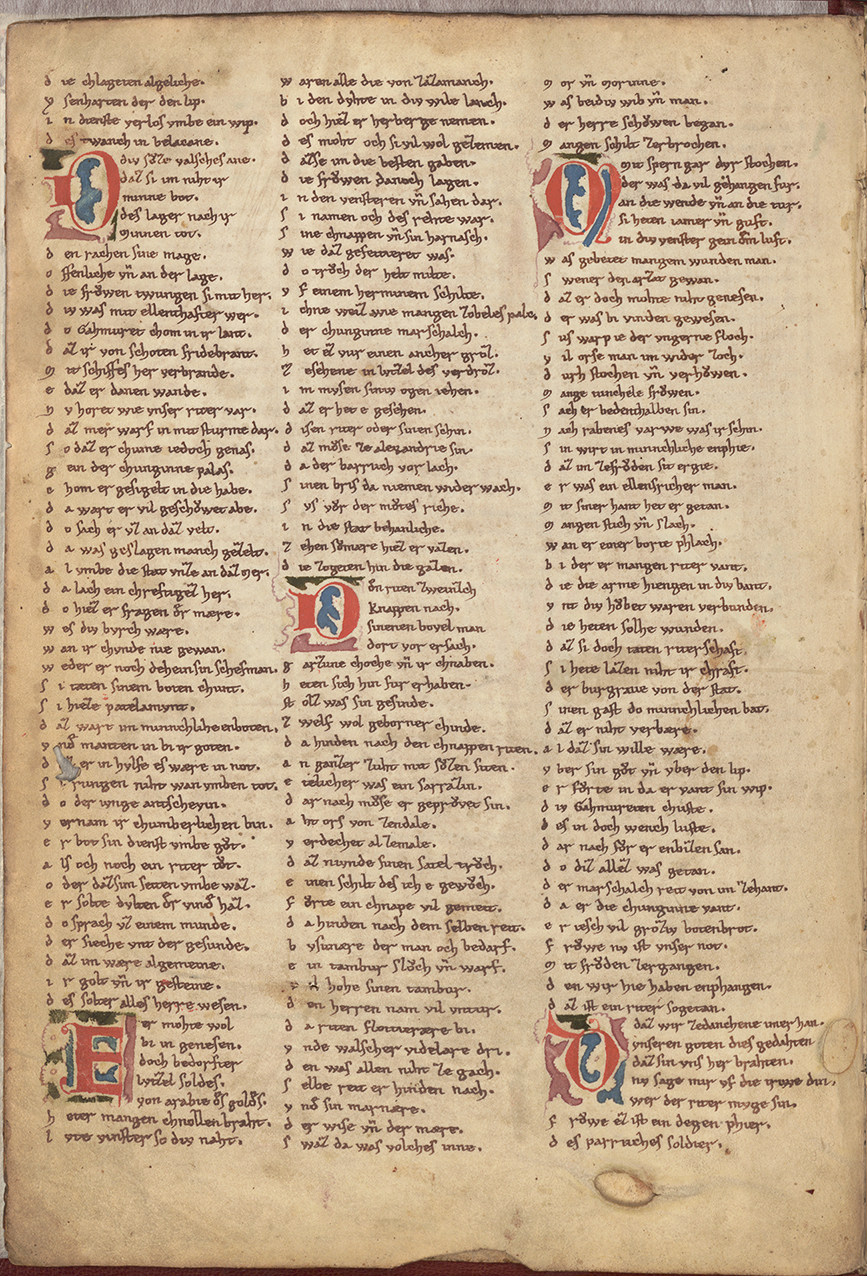 die chlageten algeliche.
ysenharten der den lip.
in dienste verlos vmbe ein wip.
des twanch in belacane.
Div sůze valsches ane.
daz si im niht ir
minne bot.
des lager nach ir
minnen tot.
den rachen sine mage.
offenliche vñ an der lage.
die frowen twungen si mit her.
div was mit ellenthafter wer.
do Gahmuret chom in ir lant.
daz ir von schoten fridebrant.
mit schiffes her verbrande.
e daz er danen wande.
nv horet wie vnser riter var.
daz mer warf in mit sturme dar.
so daz er chume iedoch genas.
gein der chunginne palas.
chom er gesigelt in die habe.
da wart er vil geschowet abe.
do sach er vz an daz velt.
da was geslagen manch gezelt.
al vmbe die stat vnze an daz mer.
da lach ein chreftigez her.
do hiez er fragen der mære.
wes div burch wære.
wan ir chvnde nie gewan.
weder er noch dehein sin schefman.
si taten sinem boten chunt.
si hieze patelamvnt.
daz wart im minnchliche enboten.
vnd manten in bi ir goten.
er in hvlfe es wære in not.
si rungen niht wan vmben tot.
do der ivnge antschevin.
vernam ir chumberlichen pin.
er bot sin dienst vmbe gůt.
als och noch ein riter tůt.
oder daz sim seiten vmbe waz.
er solte dvlten der vinde haz.
do sprach vz einem munde.
der sieche vnt der gesunde.
daz im wære algemeine.
ir golt vñ ir gesteine.
des solter alles herre wesen.
Er mohte wol
bi in genesen.
doch bedorfter
lvzel soldes.
von arabie des goldes.
heter mangen chnollen braht.
lvte vinster so div naht.
waren alle die von zazamanch.
bi den dvhte in div wile lanch.
doch hiez er herberge nemen.
des moht och si vil wol gezemen.
daz se im die besten gaben.
die frowen dannoch lagen.
in den venstern vñ sahen dar.
si namen och des rehte war.
sine chnappen vñ sin harnasch.
wie daz gefeitieret was.
do trůch der helt milte.
vf einem herminem schilte.
ichne weiz wie mangen zobeles palc.
der chunginne marschalch.
het ez vur einen ancher groz.
ze sehene in lvtzel des verdroz.
im mvsen siniv ogen iehen.
daz er hete gesehen.
disen riter oder sinen schin.
daz mose ze alexandrie sin.
da der barruch vor lach.
sinen pris da niemen wider wach.
sus vor der motes riche.
in die stat behanliche.
zehen sömære hiez er vazen.
die zogeten hin die gazen.
Den riten zweinzich
knappen nach.
sinenen bovel man
dort vor ersach.
garzune choche vñ ir chnaben.
heten sich hin fur erhaben.
stolz was sin gesinde.
zwelf wol geborner chinde.
da hinden nach den chnappen riten.
an ganzer zuht mit sůzen siten.
etelicher was ein sarrazin.
dar nach můse er geprovet sin.
aht ors von zendale.
verdechet al zemale.
daz niunde sinen satel trůch.
einen schilt des ich e gewůch.
fůrte ein chnape vil gemeit.
da hinden nach dem selben reit.
bvsunære der man och bedarf.
ein tambur slůch vñ warf.
vil hohe sinen tambur.
den herren nam vil vntur.
da riten flottieræere bi.
vnde walscher videlare dri.
den was allen niht ze gach.
selbe reit er hinden nach.
vnd sin marnære.
der wise vñ der mære.
swaz da was volches inne.
mor vñ morinne.
was beidiv wib vñ man.
der herre schowen began.
mangen schilt zerbrochen.
Mit spern gar dvr stochen.
der was da vil gehangen fur.
an die wende vñ an die tur.
si heten iamer vñ guft.
in div venster gein dem luft.
was gebetet mangem wunden man.
swener den arzat gewan.
daz er doch mohte niht genesen.
der was bi vinden gewesen.
sus warp ie der vngerne floch.
vil orse man im wider zoch.
durh stochen vñ verhowen.
mange tunchele frowen.
sach er bedenthalben sin.
nach rabenes varwe was ir schin.
sin wirt in minnchliche enphie.
daz im ze frǒden sit ergie.
er was ein ellensricher man.
mit siner hant het er getan.
mangen stich vñ slach.
wan er einer porte phlach.
bi der er mangen riter vant.
die die arme hiengen in div bant.
vnt div hǒbet waren verbunden.
die heten solhe wunden.
daz si doch taten riterschaft.
si hete lazen niht ir chraft.
der burgrave von der stat.
sinen gast do minnchlichen bat.
daz er niht verbære.
al daz sin wille wære.
vber sin gůt vñ vber den lip.
er fůrte in da er vant sin wip.
div Gahmureten chuste.
des in doch wench luste.
dar nach fůr er enbizen san.
do diz allez was getan.
der marschalch reit von im zehant.
da er die chunginne vant.
er iesch vil groziv botenbrot.
frowe nv ist vnser not.
mit frǒden zergangen.
den wir hie haben enphangen.
daz ist ein riter sogetan.
daz wir ze danchene imer han.
vnseren goten dies gedahten
daz sin vns her brahten.
nv sage mir vf die triwe din.
wer der riter mvge sin.
frowe ez ist ein degen phier.
des parruches soldier.